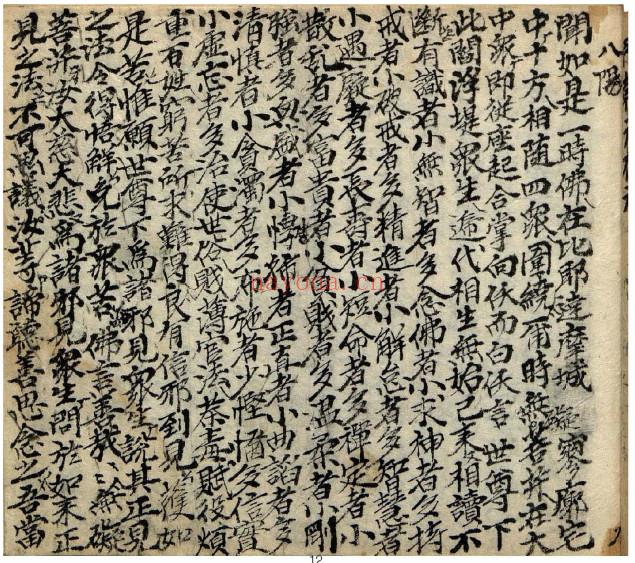 八陽
聞如是一時佛在比耶達摩城寥廓宅
中十方相随四衆圍繞尒時無㝵菩薩在大
中衆即從座起合掌向仸而白仸言世尊下
此閻浮提衆生遞代相生無始已来相讀不
断有識者小無智者多念佛者小求神者多持
戒者小破戒者多精進者小解怠者多智慧者
小愚癡者多長壽者小短命者多禪定者小
散乱者多富貴者貧賤者多温柔者小剛
強者多者小者正直者小曲諂者多
清慎者小貪濁者多布施者少慳悋多信實
小虚妄者多治使世俗賎薄官法荼毒賦役煩
重百姓窮苦所求難得良有信邪到見獲如
是苦惟願世尊下為諸邪見衆生說其正見
之法令得悟解免於衆苦佛言善哉、無礙
菩薩汝大慈大悲為諸邪見衆生問於如来正
見之法不可思議汝等諦聽善思念之吾當
nayona.cn
12